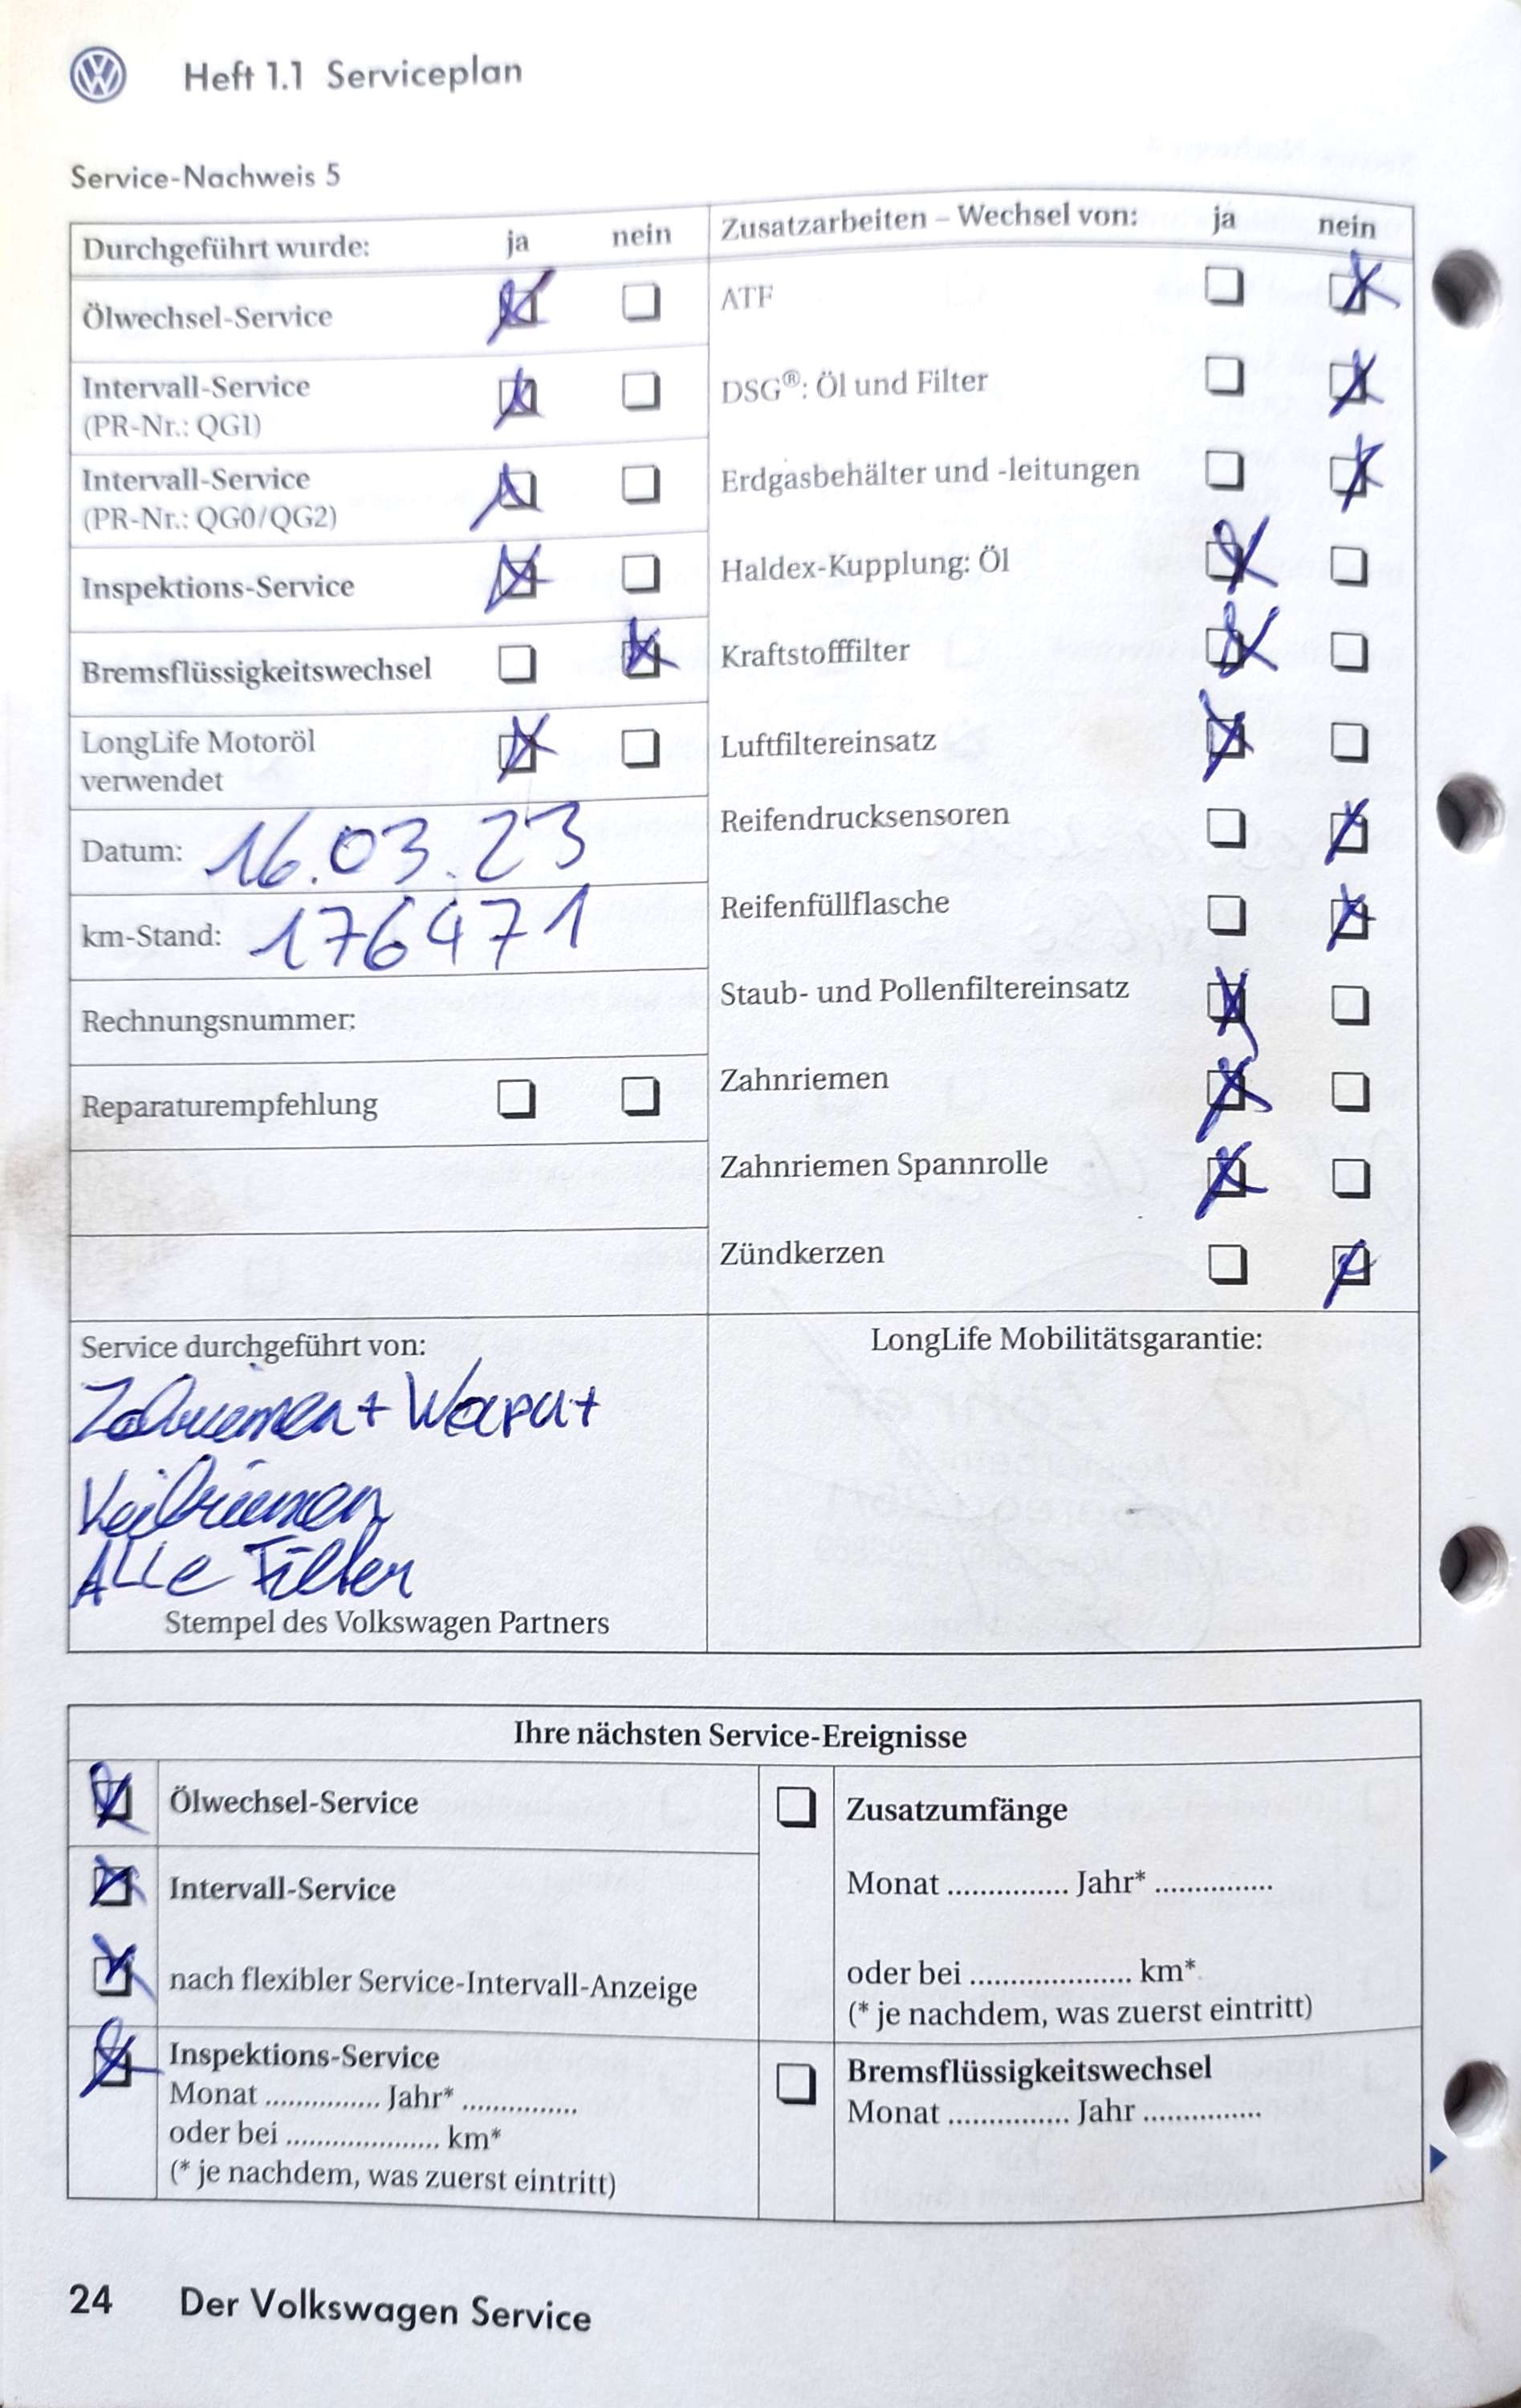 Heft 1.1 Serviceplan
Service-Nachweis 5
Durchgeführt wurde: ja nein
Ölwechsel-Service
Intervall-Service
(PR-Nr.: QG1)
Intervall-Service
(PR-Nr.: QG0/QG2)
Inspektions-Service
Bremsflüssigkeitswechsel
LongLife Motoröl
verwendet
Datum: 16.03.23
km-Stand: 176471
Rechnungsnummer:
Reparaturempfehlung
Zusatzarbeiten – Wechsel von: ja nein
ATF
DSG®: Öl und Filter
Erdgasbehälter und -leitungen
Haldex-Kupplung: Öl
Kraftstofffilter
Luftfiltereinsatz
Reifendrucksensoren
Reifenfüllflasche
Staub- und Pollenfiltereinsatz
Zahnriemen
Zahnriemen Spannrolle
Zündkerzen
Service durchgeführt von:
Zahnriemen + Wapu +
Keilriemen
Alle Filter
Stempel des Volkswagen Partners
LongLife Mobilitätsgarantie:
Ihre nächsten Service-Ereignisse
Ölwechsel-Service
Intervall-Service
nach flexibler Service-Intervall-Anzeige
Inspektions-Service
Monat ............... Jahr* ...............
oder bei .................... km*
(* je nachdem, was zuerst eintritt)
Zusatzumfänge
Monat ............... Jahr* ...............
oder bei .................... km*
(* je nachdem, was zuerst eintritt)
Bremsflüssigkeitswechsel
Monat ............... Jahr ...............
24 Der Volkswagen Service